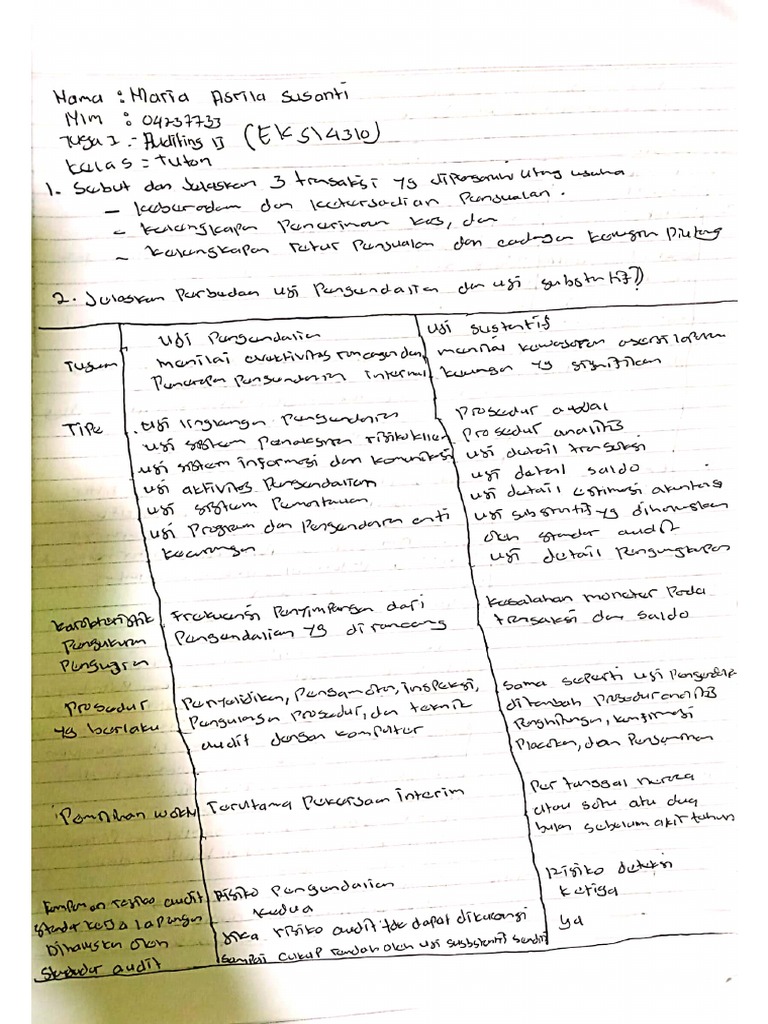 Nama : Maria Asrila Susanti
Nim : 04237733
Tugas I - Auditing II (EKSI4310)
Kelas = Tuton
1. Sebut dan Jelaskan 3 transaksi yg dipengaruhi utang usaha
- keberadaan dan keterjadian Penjualan.
- kelengkapan Penerimaan kas, dan
- kelengkapan retur Penjualan dan cadangan kerugian Piutang
2. Jelaskan Perbedaan uji Pengendalian dan uji substantif?
Uji Pengendalian
uji sustantif
Tujuan
menilai evektivitas rancangan dan
Penerapan Pengendalian internal
menilai kewajaran asersi laporan
keuangan yg signifikan
Tipe
. uji lingkungan Pengendalian
uji sistem Penaksiran risiko klien
uji sistem informasi dan komunikasi
uji aktivitas Pengendalian
uji sistem Pemantauan
uji Program dan Pengendalian anti
kecurangan
Prosedur awal
Prosedur analitis
uji detail transaksi
uji detail saldo
uji detail estimasi akuntansi
uji substantif yg diharuskan
oleh standar audit
uji detail Pengungkapan
Karakteristik
Pengukuran
Pengujian
Frekuensi Penyimpangan dari
Pengendalian yg dirancang
kesalahan moneter Pada
transaksi dan saldo
Prosedur
yg berlaku
Penyelidikan, Pengamatan, inspeksi,
Pengulangan Prosedur, dan teknik
audit dengan komputer
Sama seperti uji Pengendalian
ditambah Prosedur analitis
Penghitungan, konfirmasi
Placakan, dan
Pemilihan waktu
Terutama Pekerjaan interim
Per tanggal neraca
atau satu atau dua
bulan sebelum akir tahun
Komponen resiko audit
Risiko Pengendalian
Risiko deteksi
standar kerja lapangan
kedua
ketiga
Diharuskan oleh
Standar audit
Jika risiko audit tdk dapat dikurangi
sampai cukup rendah oleh uji substanti sendiri
ya